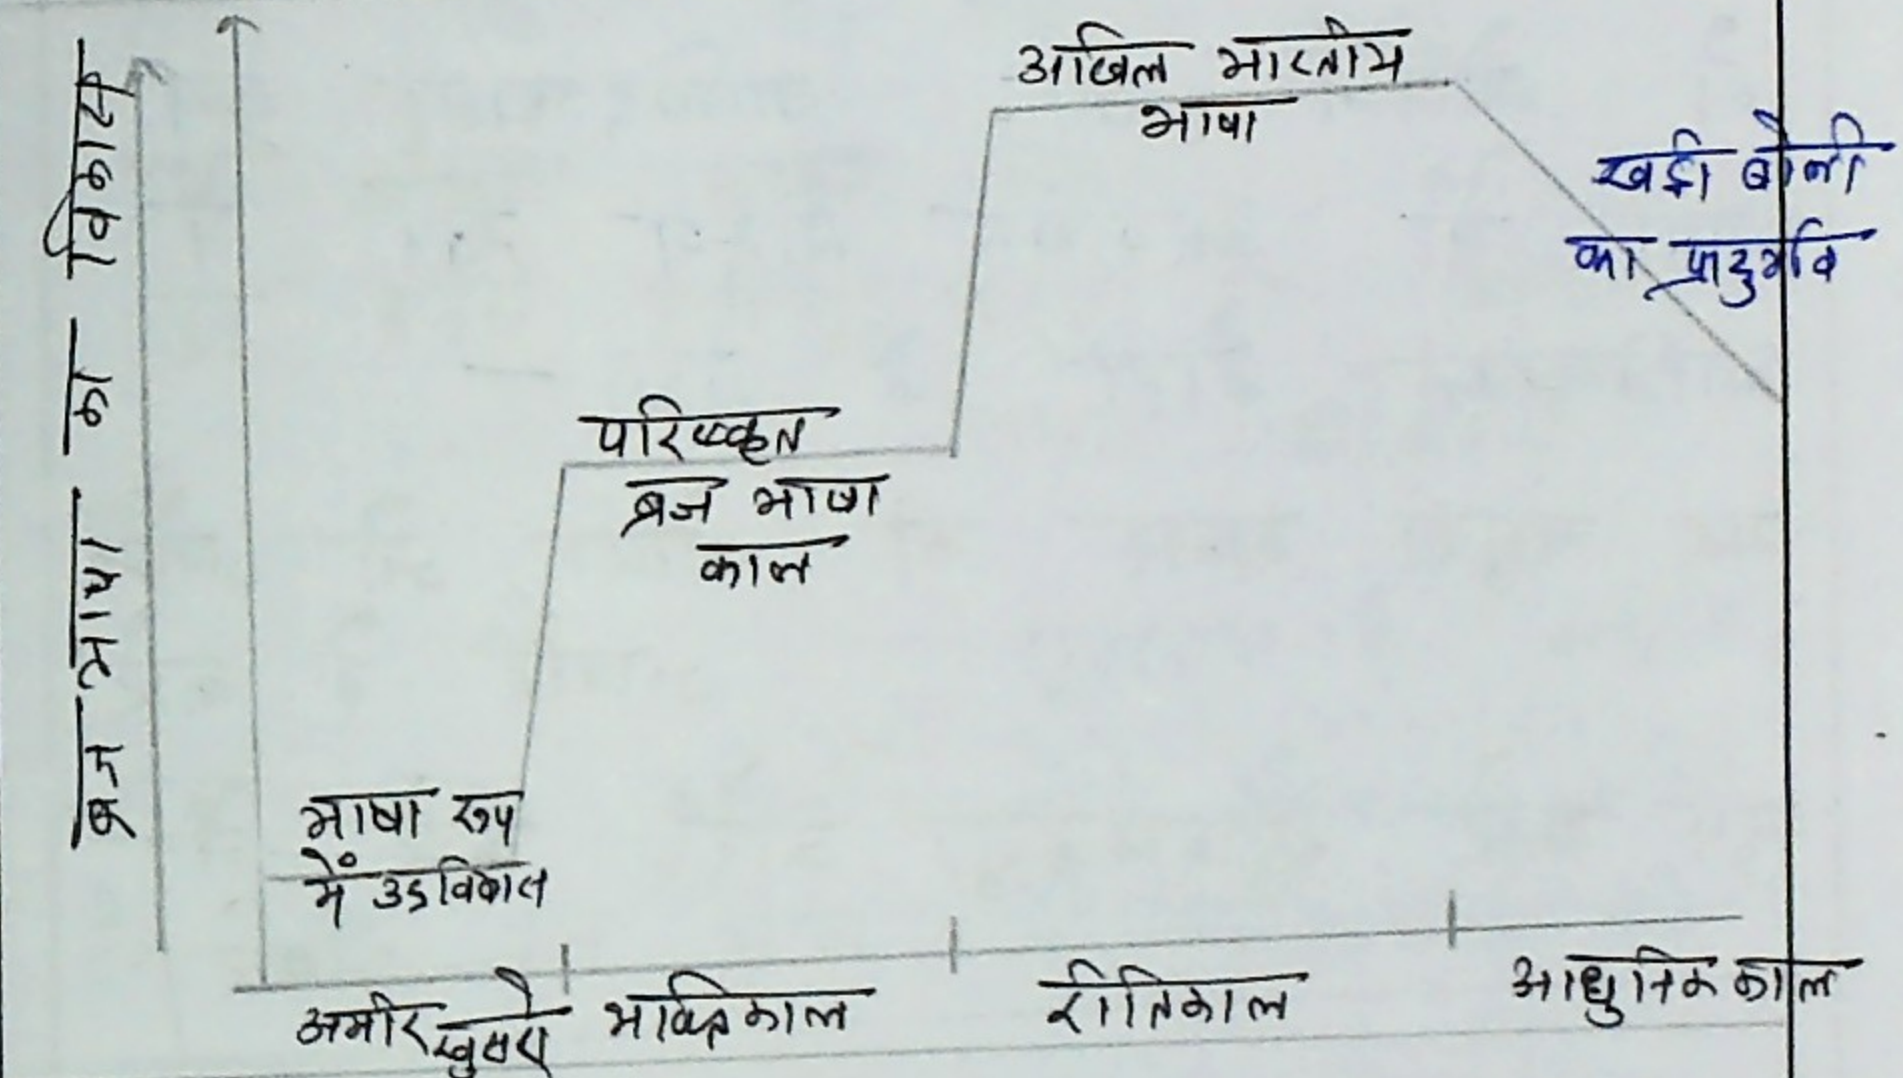 ब्रज भाषा का विकास
अखिल भारतीय
भाषा
खड़ी बोली
का प्रादुर्भाव
परिष्कृत
ब्रज भाषा
काल
भाषा रूप
में
अमीर खुसरो
भक्तिकाल
रीतिकाल
आधुनिक काल